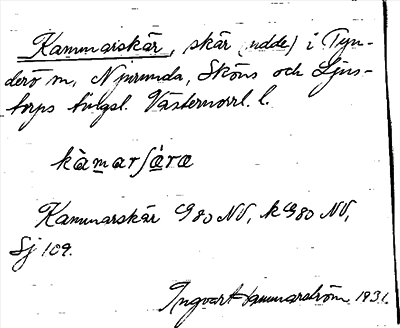 Kammarskär, skär (udde) i Tyn-
derö m, Njurunda, Sköns och Ljus-
torps tingsl. Västernorrl. l.
kàmarʃæ̀ra
Kammarskär G 80 NV, k G 80 NV,
Sj 109.
Ingvar Hammarström 1931.